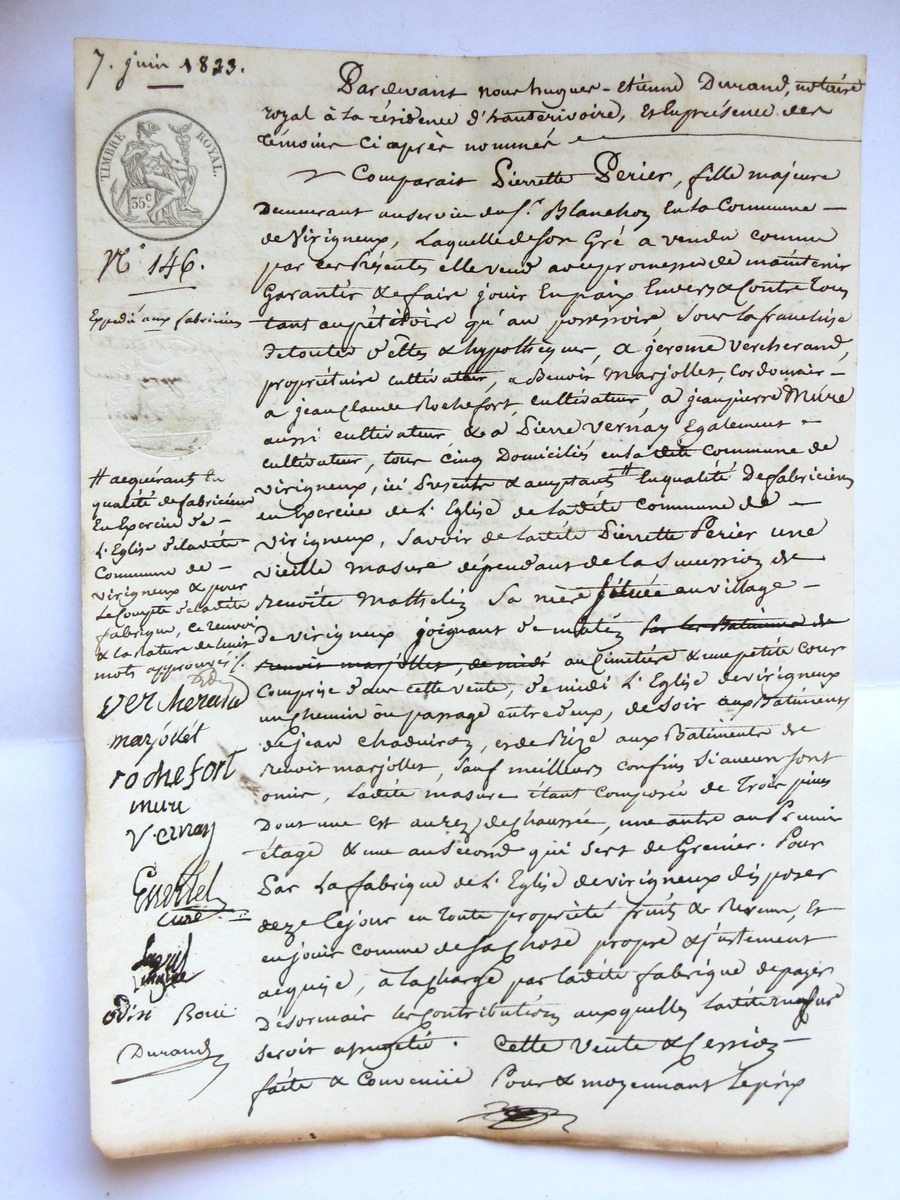 7. juin 1823.
TIMBRE ROYAL.
35c
N° 146.
Expedié aux fabriciens
Pardevant nous hugues-etienne Durand, notaire
royal à la résidence d'hauterivoire, et en présence des
témoins ci après nommés
Comparait Pierrette Perier, fille majeure
Demeurant au service du Sr. Blanchon en la Commune
de Virigneux, laquelle de son gré a vendu comme
par ces présentes elle vend avec promesse de maintenir
Garantir & de faire jouir en paix envers & contre tous
tant au pétitoire qu'au possessoir, sous la franchise
de toutes dettes & hypothèques, a jerome Vercherand,
propriétaire cultivateur, a Benoit Marjollet, Cordonnier
a jean Claude Rochefort, cultivateur, a jean pierre Mure
aussi cultivateur & a Pierre Vernay Egalement
cultivateur, tous cinq Domiciliés en la dite commune de
virigneux, ici présents & acceptants # En qualité De fabriciens
en Exercice de l'Eglise de la dite commune de
virigneux, Savoir de la dite Pierrette Perier une
vieille masure dépendant de la succession de
benoite Mathelin sa mère située au village
De virigneux joignant de matin par les Batiments de
benoit marjollet, de midi au Cimetière & une petite cour
Comprise dans cette vente, de midi l'Eglise de virigneux
un chemin ou passage entre deux, de soir aux Batiments
de jean, et de bize aux Batiments de
benoit marjollet, sauf meilleurs confins si aucun sont
omis, ladite masure étant composée de Trois pièces
Dont une est au rez de chaussée, une autre au Premier
étage & une au second qui sert de Grenier. Pour
Par la fabrique de l'Eglise de virigneux disposer
dez ce jour en toute propriété fruits & Revenu, Et
en jouir comme de sa chose propre & justement
acquise, à la charge par ladite fabrique de payer
Désormais les contributions auxquelles ladite masure
seroit assujetie. Cette Vente & Cession
faite & Convenue Pour & moyennant le prix
# acquérants En
qualité de fabriciens
En Exercice de
l'Eglise de la dite
Commune de
virigneux & pour
le Compte de la dite
fabrique, ce renvoi
& la rature de huit
mots approuvés
verCherand
marjollet
rochefort
mure
Vernay
curé
odin
Durand